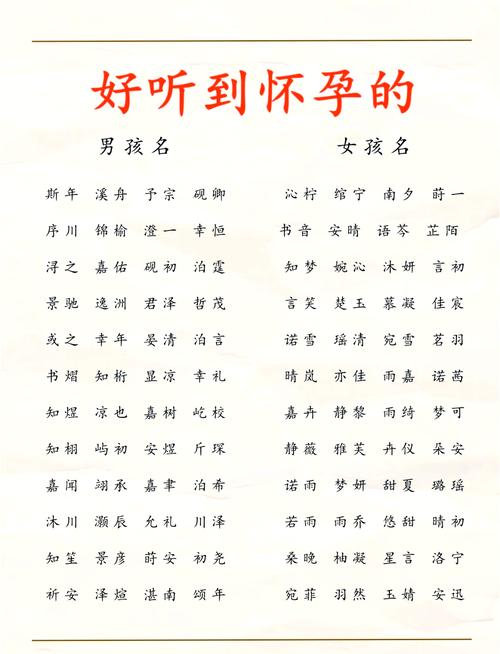 好听到怀孕的
男孩名 女孩名
斯年 溪舟 予宗 砚卿 沁柠 绾宁 南夕 莳一
序川 锦榆 澄一 幸恒 书音 安晴 语芩 芷陌
浔之 嘉佑 砚初 泊霆 知梦 婉沁 沐妍 言初
景驰 逸洲 君泽 哲茂 言笑 楚玉 慕凝 佳宸
或之 幸年 晏清 泊言 诺雪 瑶清 宛雪 茗羽
书熠 知桁 显凉 幸礼 晴岚 亦佳 雨嘉 诺茜
知煜 凉也 嘉树 屹校 嘉卉 静黎 雨绮 梦可
知栩 屿初 安煜 斤琛 静薇 雅芙 卉仪 朵安
嘉闻 翊承 嘉聿 泊希 诺雨 梦妍 甜夏 璐瑶
沐川 灏辰 允礼 川泽 若雨 雨乔 悠甜 晴初
知笙 景彦 莳安 初尧 桑晚 柚凝 星言 洛宁
祈安 泽煊 湛南 颂年 宛菲 羽然 玉婧 安迅